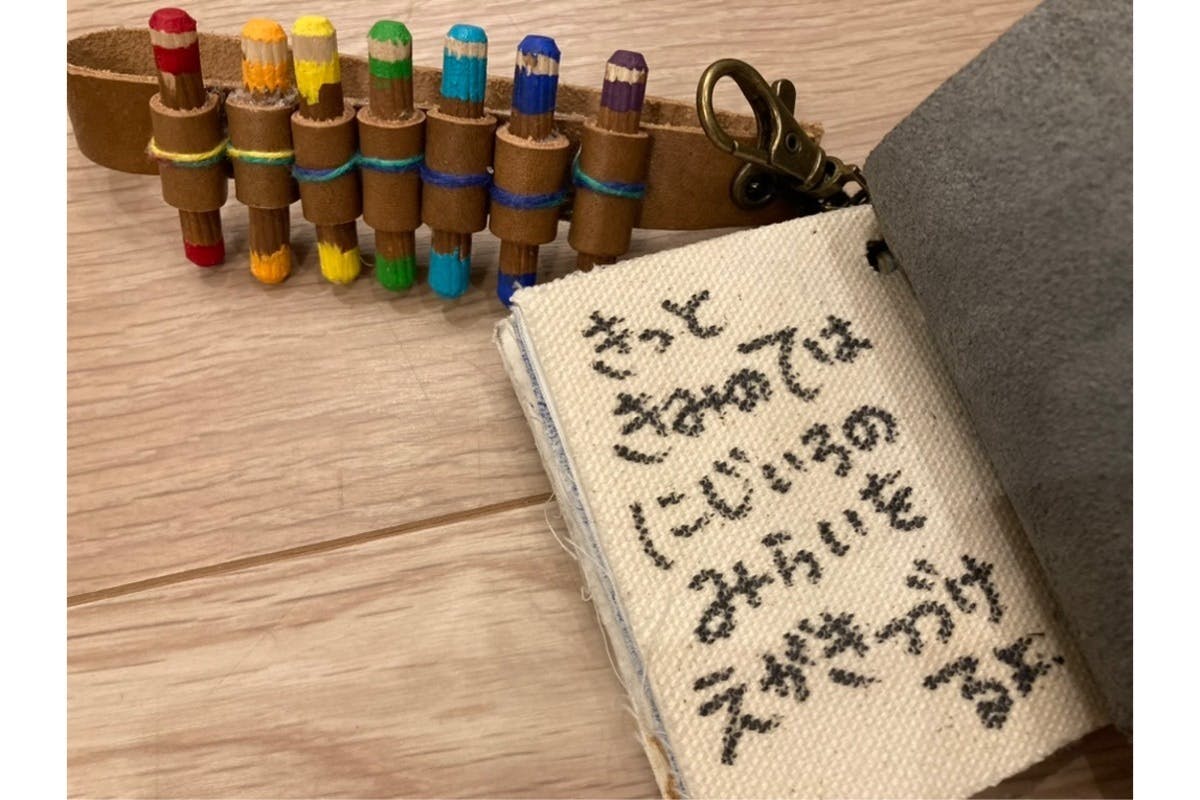 きっと
きみのては
にじいろの
みらいを
えがきつづけ
るよ